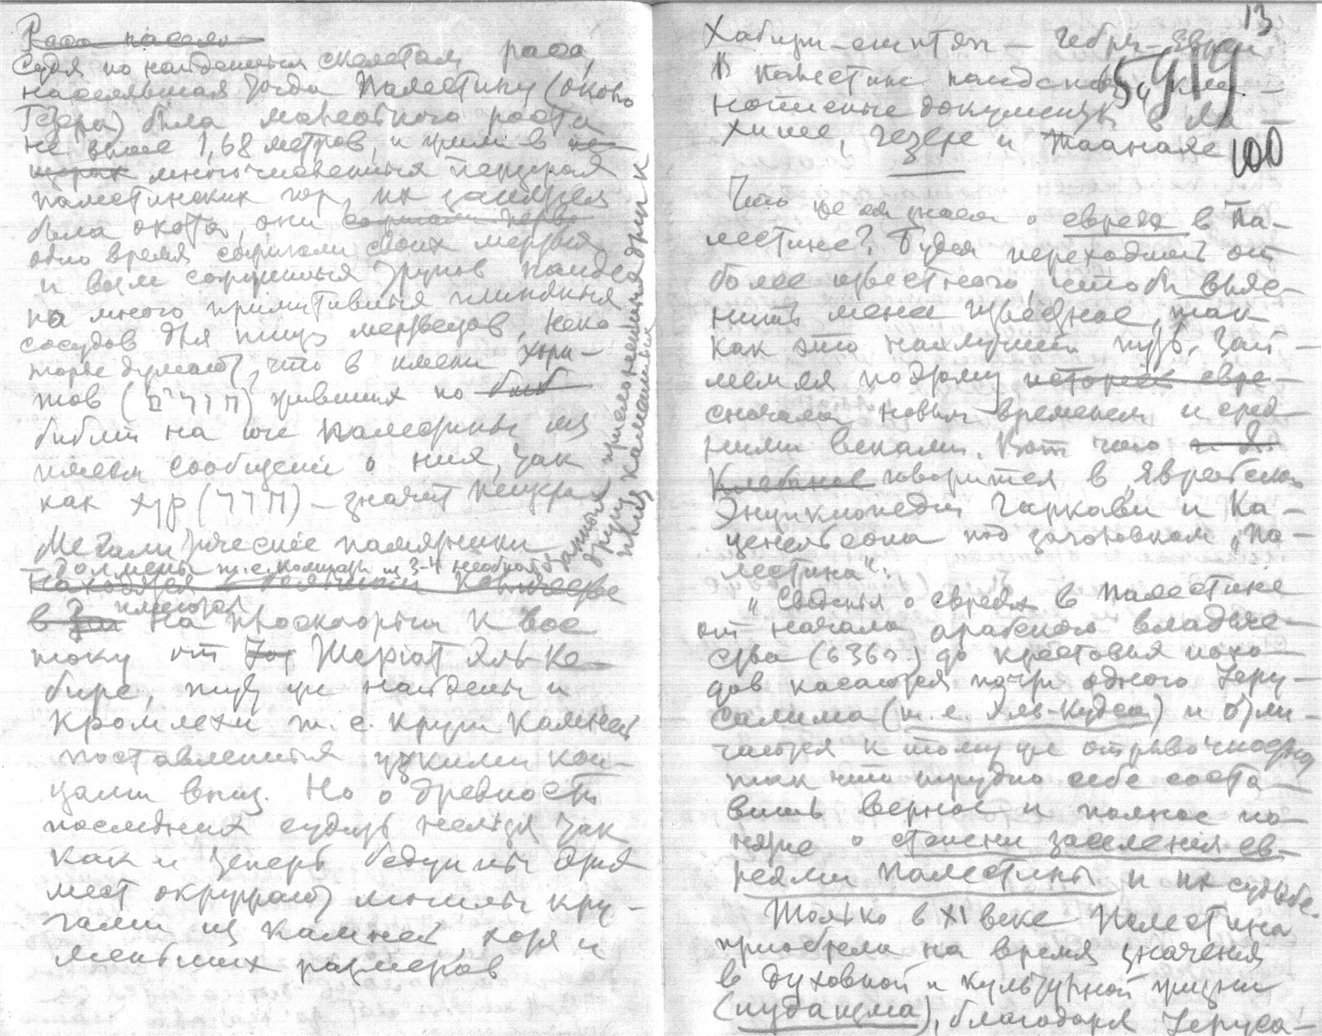 Раса насел
Судя по найденным скелетам раса,
населявшая тогда Палестину (около
Гезера) была малого роста
не выше 1,68 метров, и жили в пе-
щерах многочисленных пещерах
палестинских гор, их занятием
была охота, они сжигали перво
одно время сжигали своих мертвых
и возле сожженных трупов найде-
но много примитивных глиняных
сосудов для пищи мертвецов, неко-
торые думают, что в имени хори-
тов (חרים) живших по биб
библии на юге Палестины мы
имеем сообщение о них, так
как хур (חור) – значит пещера
Мегалитические памятники
дольмены т.е. комнаты из 3-4 необработанных друг к другу прислоненных плит каменных
находятся в большом количестве
имеются
в За на плоскогорьи к вос-
току от Иор Шериат эль Ке-
бире, тут же найдены и
кромлехи т. е. круги камней
поставленных узкими кон-
цами вниз. Но о древности
последних судить нельзя так
как и теперь бедуины для
мест окружают могилы кру-
гами из камней, хотя и
меньших размеров
13
Хабири – египтян – гебры – евреи
5919
В Палестине найдены кли-
нописные документы в Ла-
хише, Гезере и Таанахе
100
Что же мы знаем о евреях в Па-
лестине? Будем переходить от
более известного, чтобы выяс-
нить менее известное, так
как это наилучший путь. Зай-
мемся поэтому историей евре-
сначала новым временем и сред-
ними веками. Вот что
говорится в „Еврейской
Энциклопедии Гаркави и Ка-
ценельсона под заголовком „Па-
лестина":
„Сведения о евреях в Палестине
от начала арабского владыче-
ства (636 г.) до крестовых похо-
дов касаются почти одного Иеру-
салима (т. е. Эль-Кудса) и отли-
чаются к тому же отрывочностью
так что трудно себе соста-
вить верное и полное по-
нятие о степени заселения ев-
реями Палестины и их судьбе.
Только в XI веке Палестина
приобрела на время значения
в духовной и культурной жизни
(иудаизма), благодаря Иеруса-